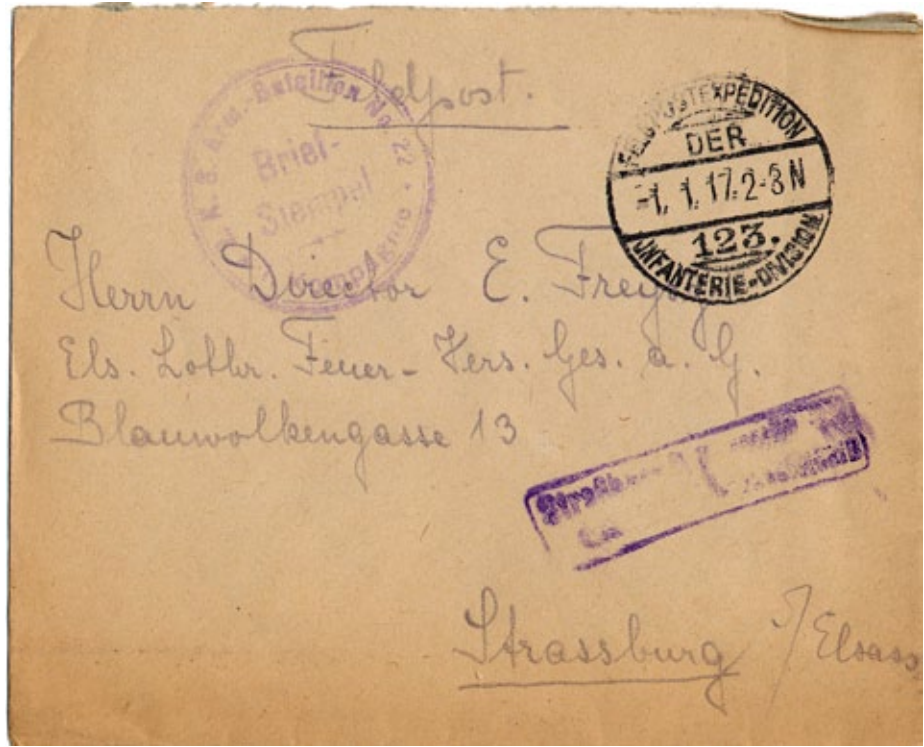 Feldpost.
K. S. Arm.-Bataillon No. 22
Brief-
Stempel
Kompagnie
FELDPOSTEXPEDITION
DER
-1. 1. 17. 2-3 N
123.
INFANTERIE-DIVISION
Herrn Director E. Freysz
Els. Lothr. Feuer-Vers. Ges. a. G.
Blauwolkengasse 13
Strassburg i/Elsass